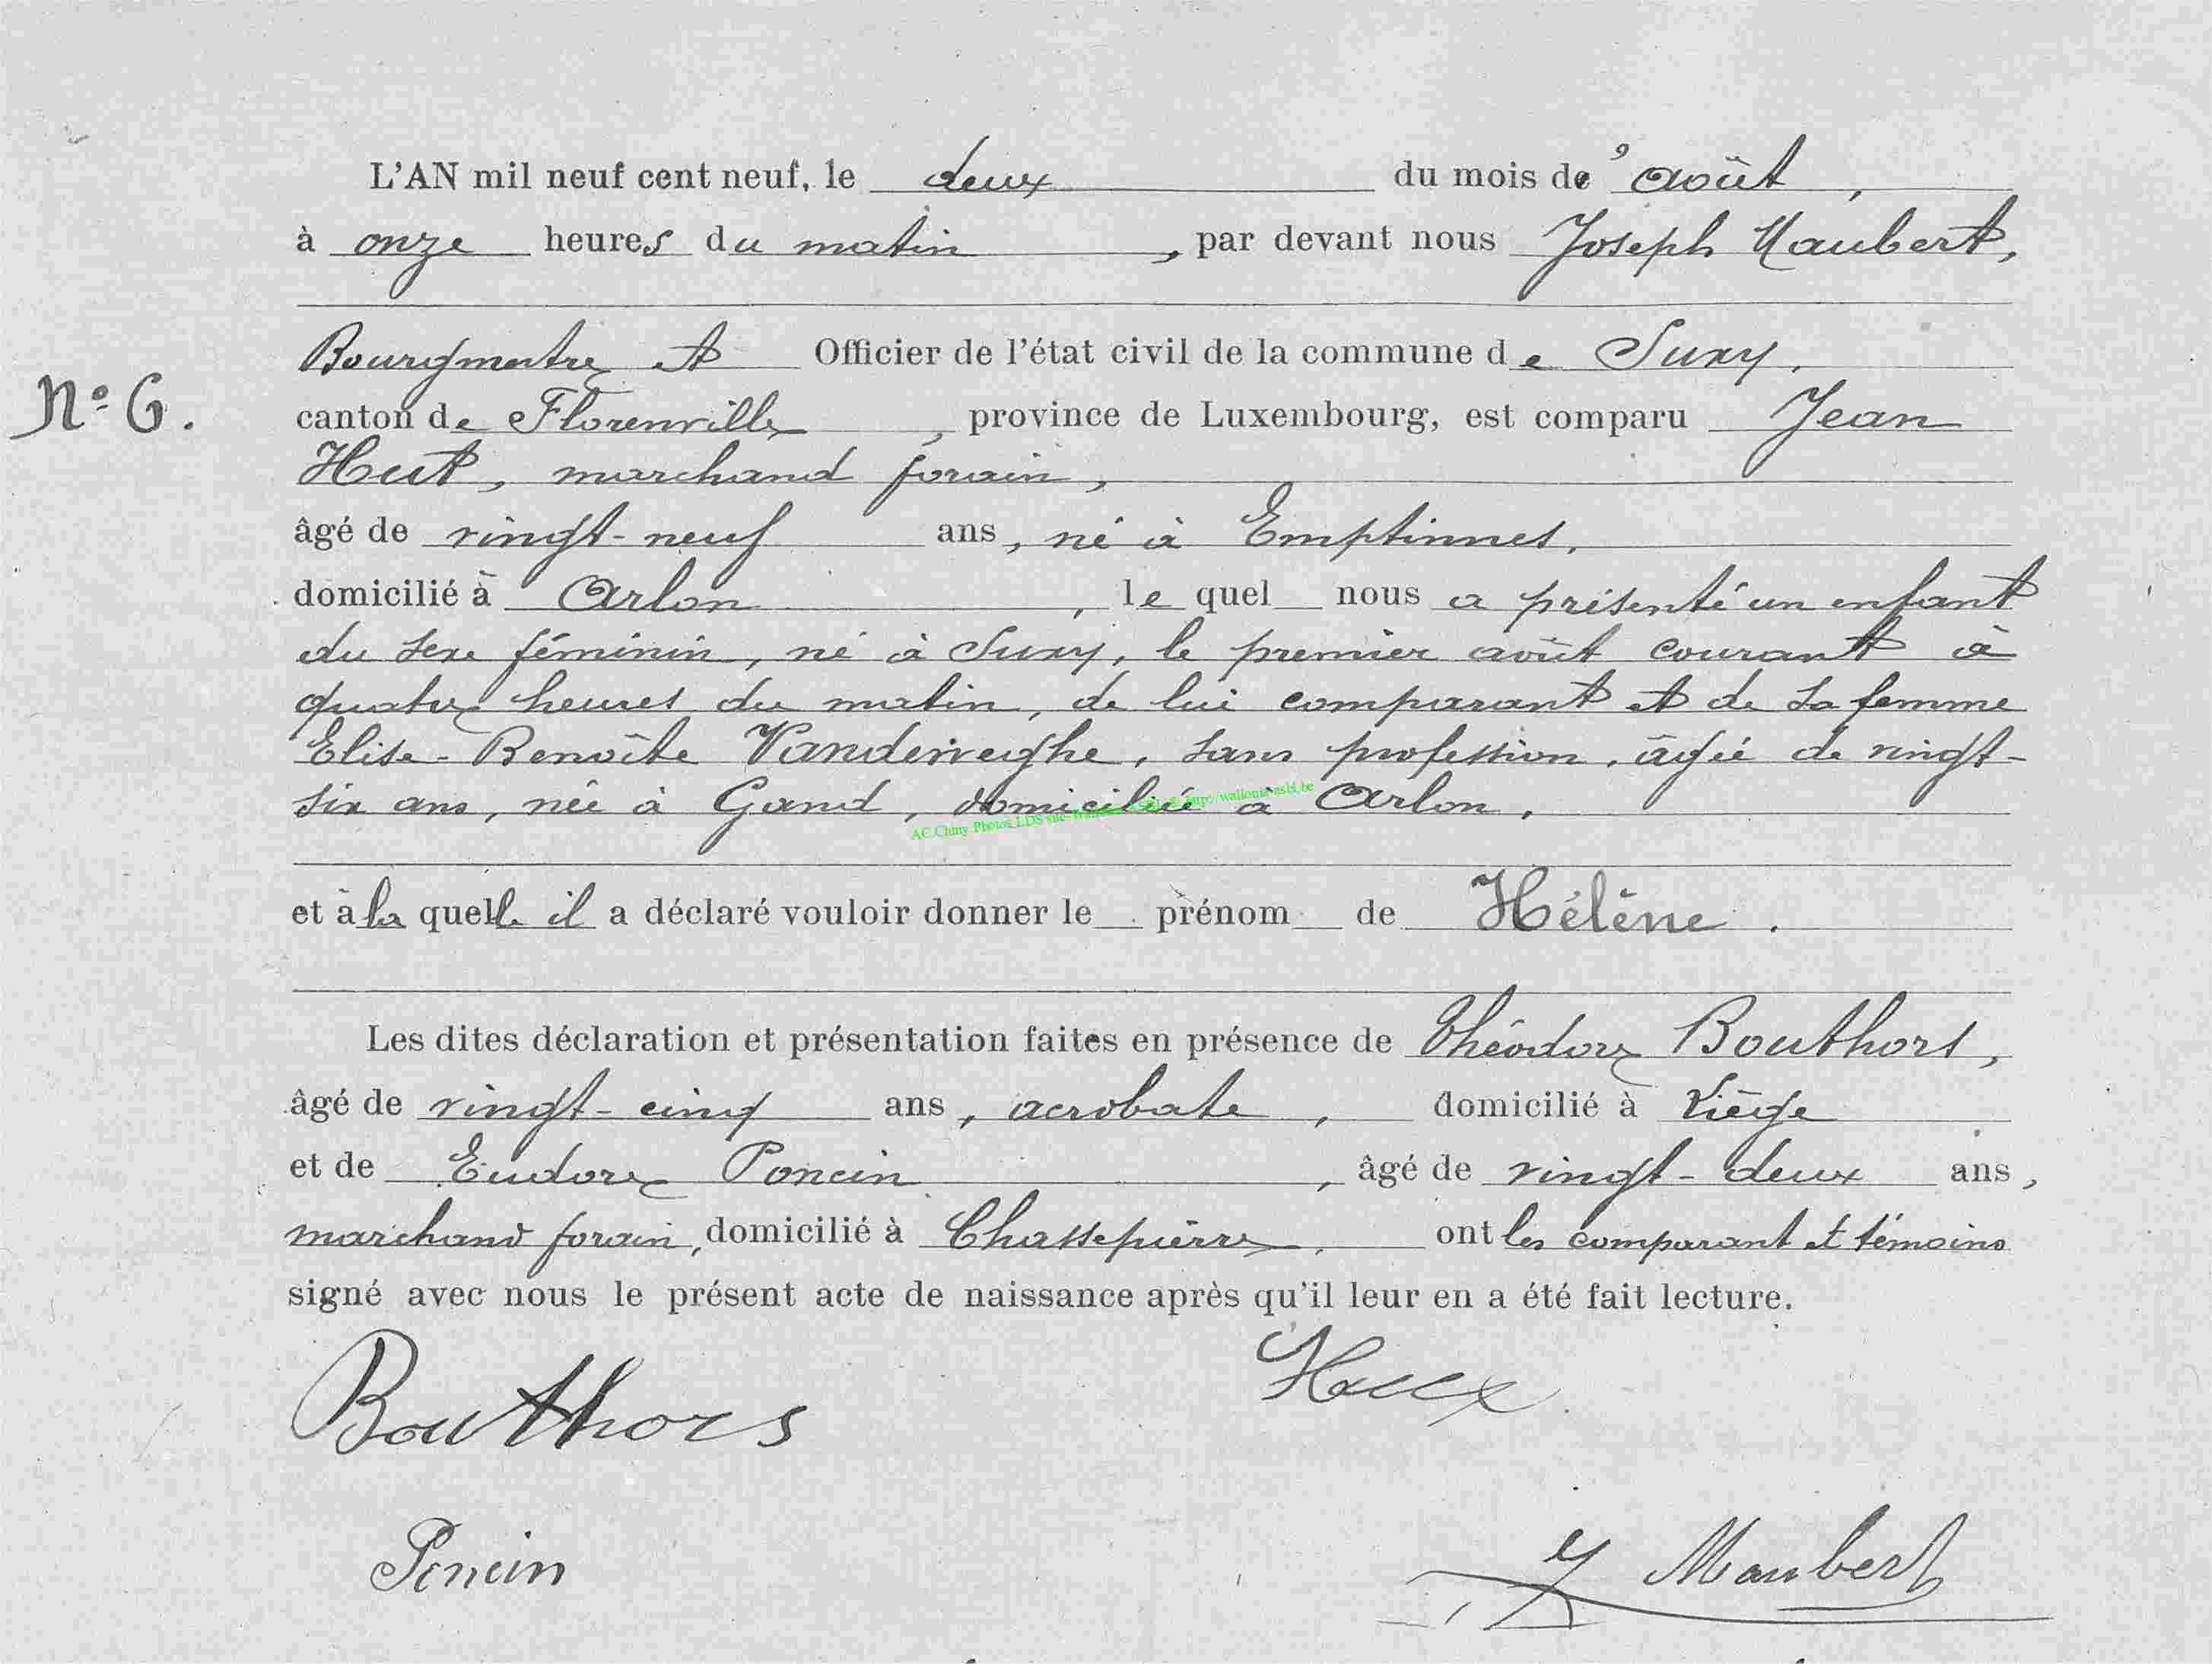 L'AN mil neuf cent neuf, le deux du mois d'août,
à onze heures du matin, par devant nous Joseph Maubert,
Bourgmestre et Officier de l'état civil de la commune de Suxy,
N° 6.
canton de Florenville, province de Luxembourg, est comparu Jean
Hut, marchand forain,
âgé de vingt-neuf ans, né à Emptinnes,
domicilié à Arlon, lequel nous a présenté un enfant
du sexe féminin, né à Suxy, le premier août courant à
quatre heures du matin, de lui comparant et de sa femme
Elise-Benoîte Vanderveighe, sans profession, âgée de vingt-
six ans, née à Gand, domiciliée à Arlon.
AC.Chiny Photos LDS http://wallonia-asbl.be
et à la quelle il a déclaré vouloir donner le prénom de Hélène.
Les dites déclaration et présentation faites en présence de Théodore Bouthors,
âgé de vingt-cinq ans, acrobate, domicilié à Liège
et de Eudore Poncin, âgé de vingt-deux ans,
marchand forain, domicilié à Chassepierre, ont les comparant et témoins
signé avec nous le présent acte de naissance après qu'il leur en a été fait lecture.
Bouthors
Poncin
J Maubert